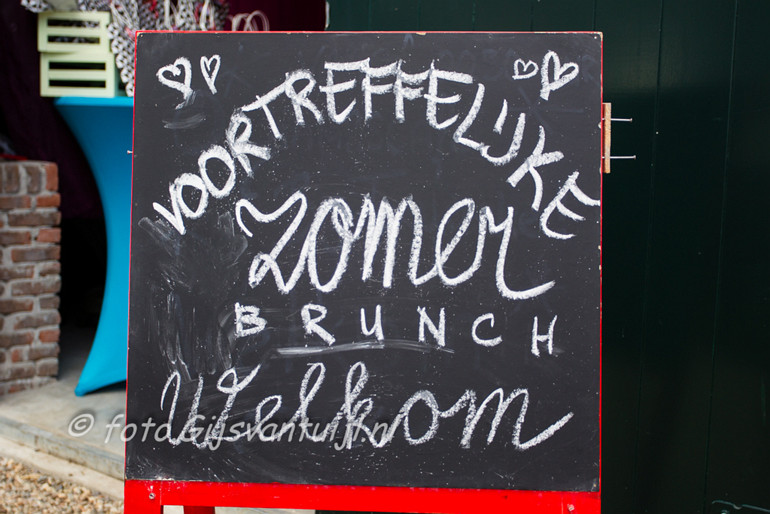 VOORTREFFELIJKE
Zomer
BRUNCH
Welkom
© foto.Gijsvantuijl.nl